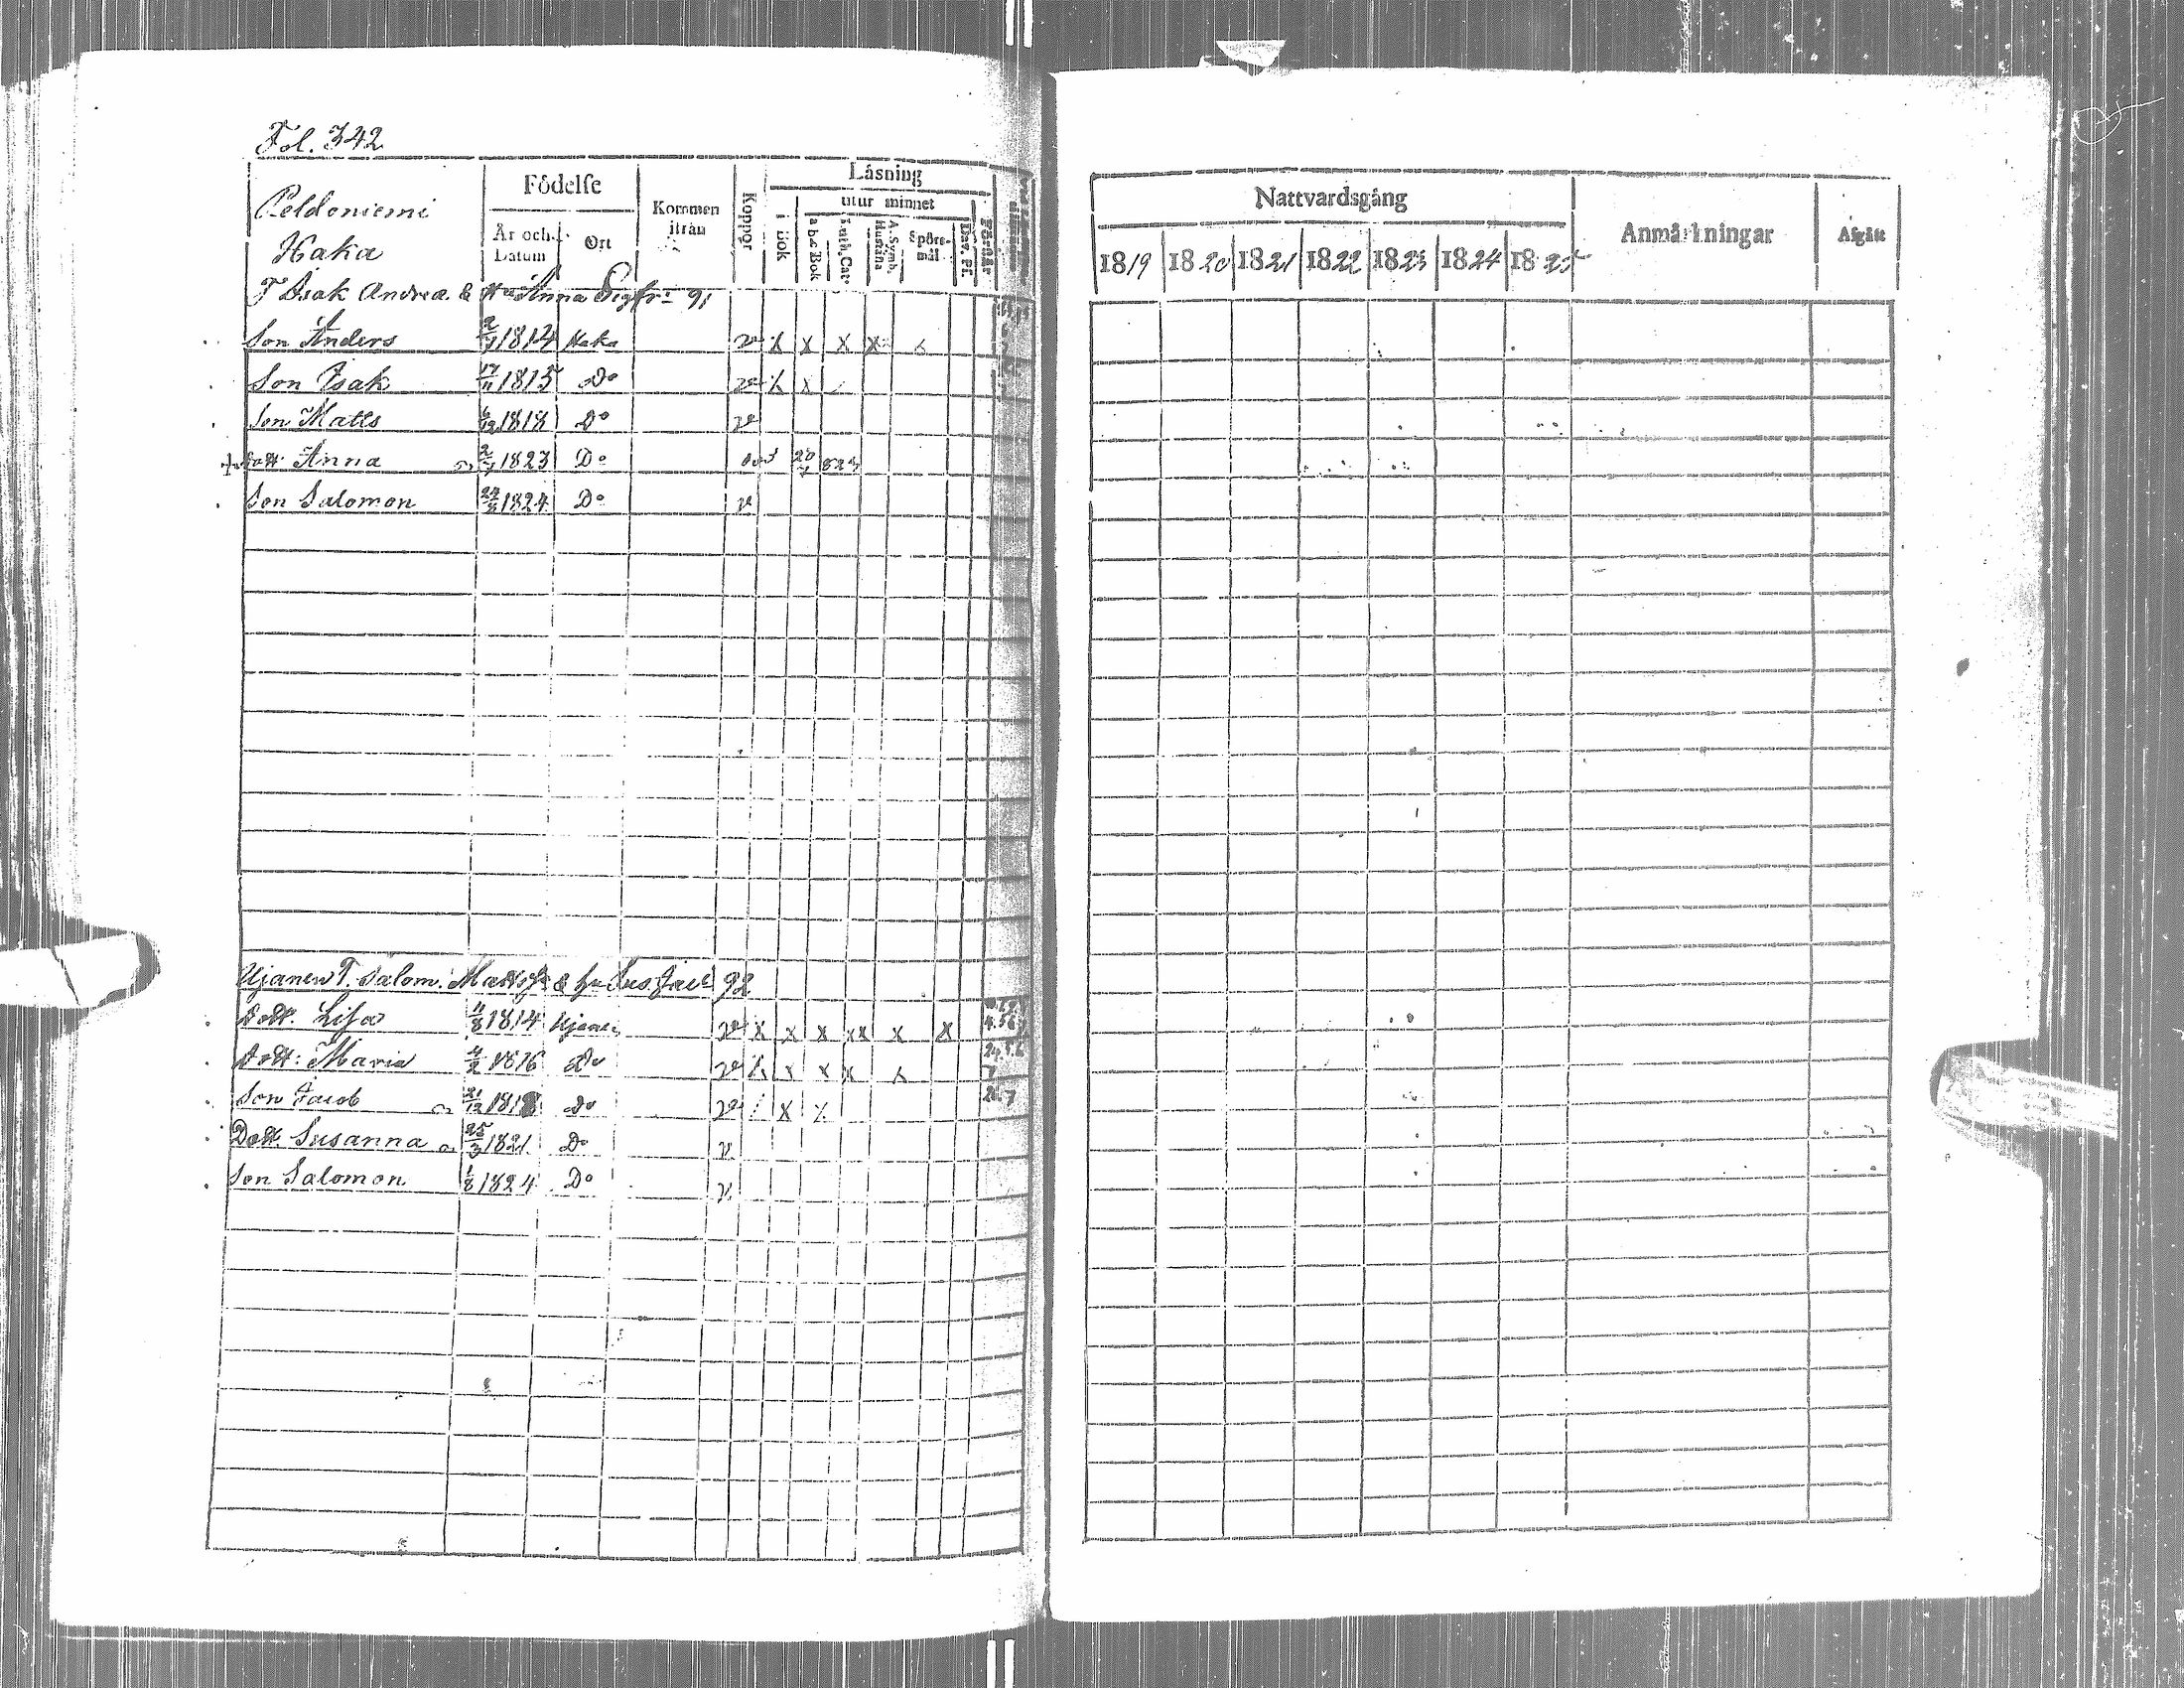 Fol. 342
Peldoniemi
Haka
Födelse
År och Datum
Ort
Kommen ifrån
Koppor
Läsning
i Bok
utur minnet
a b c Bok
Luth. Cat.
A. Symb. Hustafla
Spörsmål
Dav. Ps.
T Isak Andrea & Hu Anna Sigfr: 91
Son Anders 2/7 1814 Haka v x x x x x
Son Isak 17/11 1815 Do v x x
Son Matts 6/12 1818 Do v
+ dott: Anna 2/7 1823 Do död 20/7 823
Son Salomon 24/8 1824 Do v
Ujanen T. Salom. Matts & hu Sus. 92
Dott. Lisa 11/8 1814 Ujanen v x x x xx x x
dott: Maria 4/2 1816 Do v x x x x x
Son Jacob 21/12 1818 do v / x x
Dott. Susanna 25/3 1821 D v
Son Salomon 1/8 1824 Do v
Nattvardsgång
Anmärkningar
Afgått
1819 1820 1821 1822 1823 1824 1825